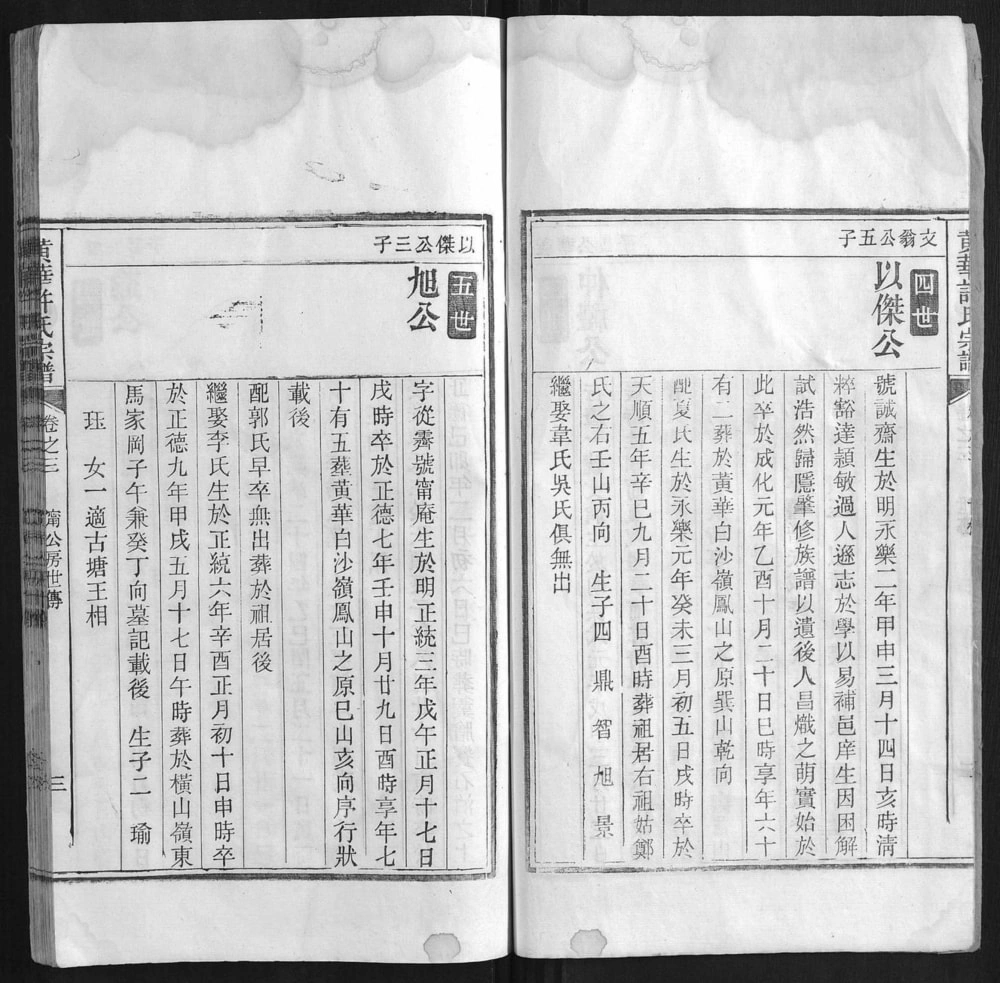 文翁公五子
四世
以傑公
號誠齋生於明永樂二年甲申三月十四日亥時淸
粹豁達頴敏過人遜志於學以易補邑庠生因困解
試浩然歸隱肇修族譜以遺後人昌熾之萌實始於
此卒於成化元年乙酉十月二十日巳時享年六十
有二葬於黃華白沙嶺鳳山之原巽山乾向
配夏氏生於永樂元年癸未三月初五日戌時卒於
天順五年辛巳九月二十日酉時葬祖居右祖姑鄭
氏之右壬山丙向 生子四 鼎 智 旭 景
繼娶韋氏吳氏俱無出
以傑公三子
五世
旭公
字從霽號甯庵生於明正統三年戊午正月十七日
戌時卒於正德七年壬申十月廿九日酉時享年七
十有五葬黃華白沙嶺鳳山之原巳山亥向序行狀
載後
配郭氏早卒無出葬於祖居後
繼娶李氏生於正統六年辛酉正月初十日申時卒
於正德九年甲戌五月十七日午時葬於橫山嶺東
馬家岡子午兼癸丁向墓記載後 生子二 瑜
珏 女一適古塘王相
黃華許氏宗譜 卷之三 甯公房世傳 三